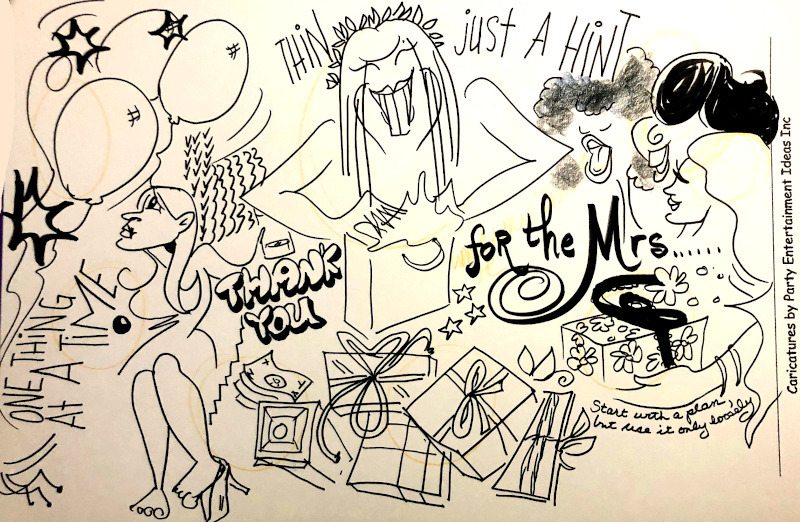 THiN
just A HiNT
for the Mrs......
THANK
YOU
ONE THING
At A TiME
Start with a plan,
but use it only loosely
Caricatures by Party Entertainment Ideas Inc